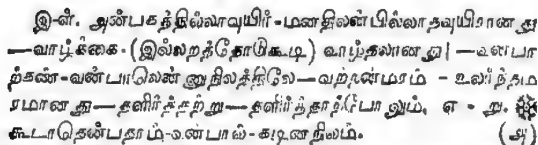 இ-ள். அன்பகத்தில்லாவுயிர்-மனதிலன்பில்லாதவுயிரானது
—வாழ்க்கை-(இல்லறத்தோடுகூடி) வாழ்தலானது—வன்பா
ற்கண்-வன்பாலென்னுநிலத்திலே—வற்றன்மரம் - உலர்ந்தம
ரமானது—தளிர்த்தற்று—தளிர்த்தாற்போலும். எ - று.
கூடாதென்பதாம்-வன்பால்-கடினநிலம். (அ)